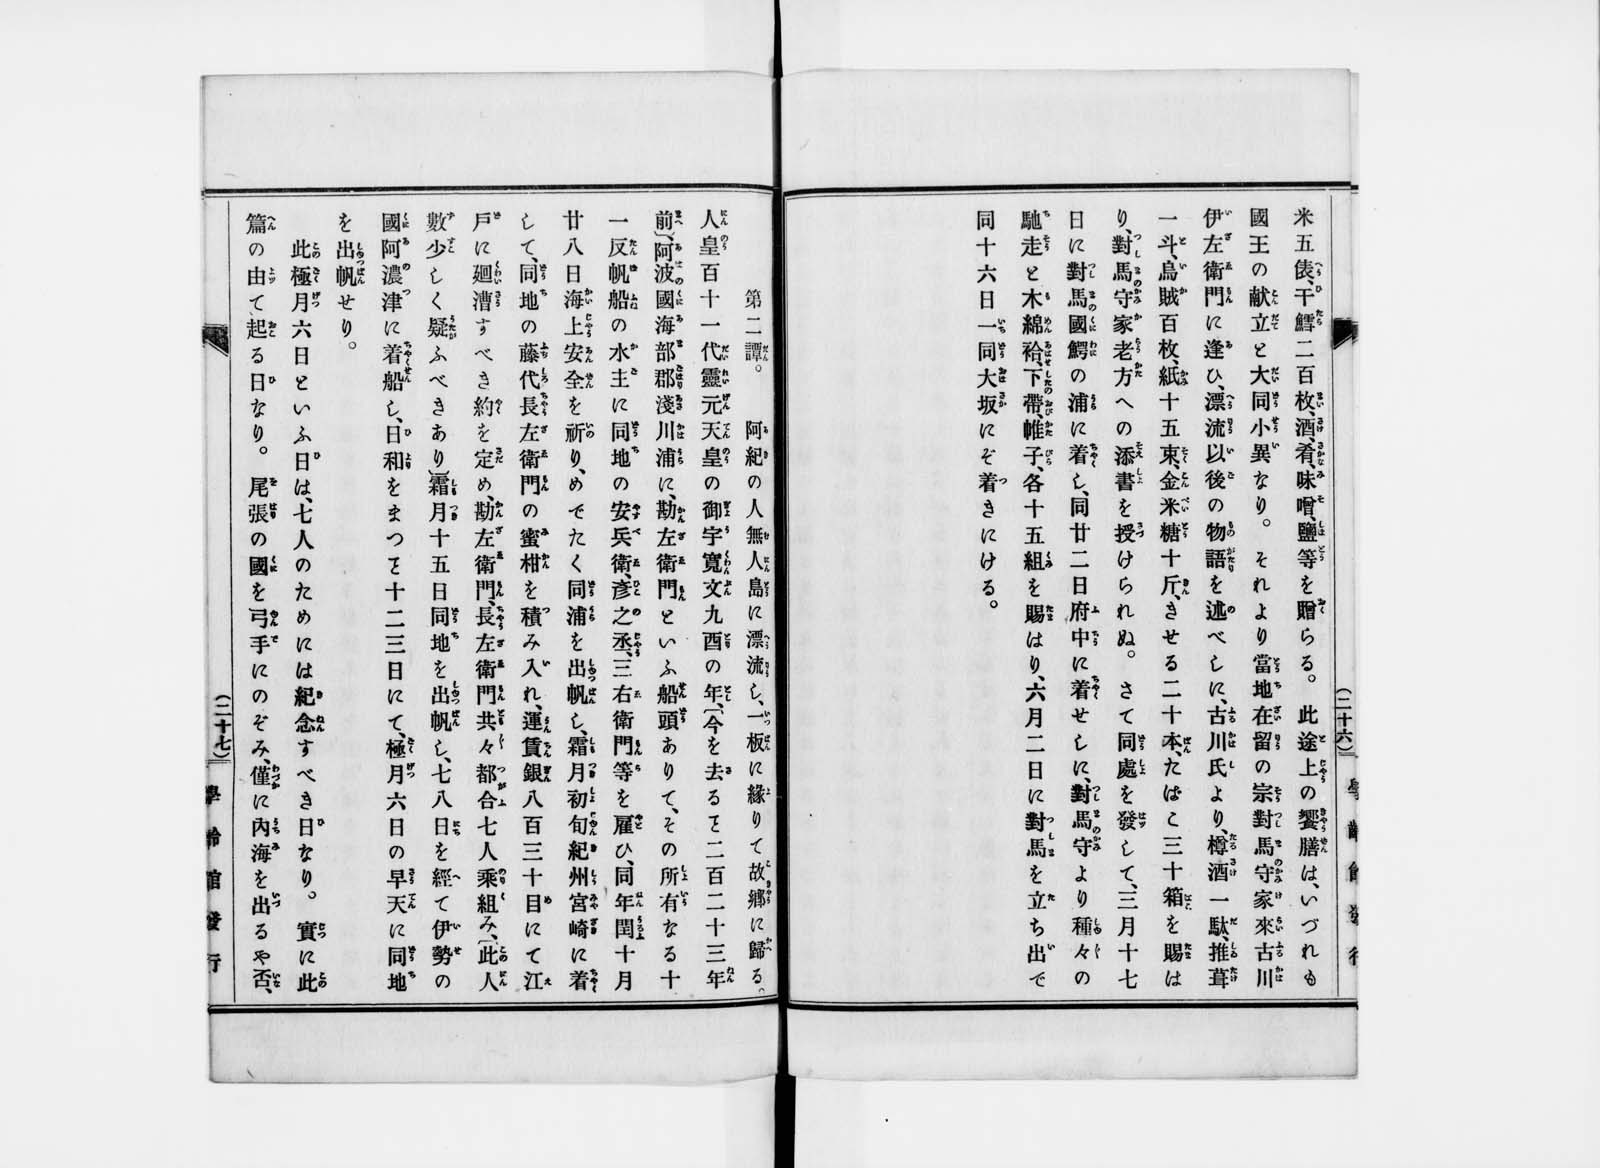 米五俵、干鱈二百枚、酒、肴、味噌、鹽等を贈らる。此途上の饗膳は、いづれも
國王の献立と大同小異なり。それより當地在留の宗對馬守家來古川
伊左衛門に逢ひ、漂流以後の物語を述べしに、古川氏より、樽酒一駄、推葺
一斗、烏賊百枚、紙十五束、金米糖十斤、きせる二十本、たばこ三十箱を賜は
り、對馬守家老方への添書を授けられぬ。さて同處を發して、三月十七
日に對馬國鰐の浦に着し、同廿二日府中に着せしに、對馬守より種々の
馳走と木綿袷、下帶、帷子、各十五組を賜はり、六月二日に對馬を立ち出で
同十六日一同大坂にぞ着きにける。
(二十六)
學齡館發行
第二譚。 阿紀の人無人島に漂流し、一板に縁りて故鄕に歸る。
人皇百十一代靈元天皇の御宇寬文九酉の年、〔今を去るて二百二十三年
前〕、阿波國海部郡淺川浦に、勘左衛門といふ船頭ありて、その所有なる十
一反帆船の水主に同地の安兵衛、彥之丞、三右衛門等を雇ひ、同年閏十月
廿八日海上安全を祈り、めでたく同浦を出帆し、霜月初旬紀州宮崎に着
して、同地の藤代長左衛門の蜜柑を積み入れ、運賃銀八百三十目にて江
戸に廻漕すべき約を定め、勘左衛門、長左衛門共々都合七人乘組み、〔此人
數少しく疑ふべきあり〕霜月十五日同地を出帆し、七八日を經て伊勢の
國阿濃津に着船し、日和をまつて十二三日にて、極月六日の早天に同地
を出帆せり。
此極月六日といふ日は、七人のためには紀念すべき日なり。實に此
篇の由て起る日なり。尾張の國を弓手にのぞみ、僅に內海を出るや否、
(二十七)
學齡館發行